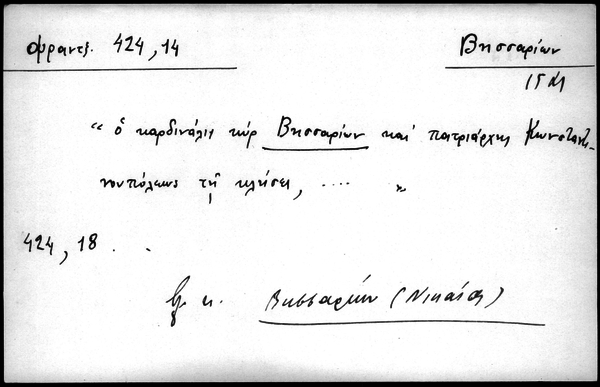 Φραντζ. 424,14
Βησσαρίων
" ὁ καρδινάλις κύρ Βησσαρίων καί πατριάρχης Κωνσταντι-
νουπόλεως τῇ κλήσει, .... "
424, 18 . .
κ. Βησσαρίων (Νικαίας)